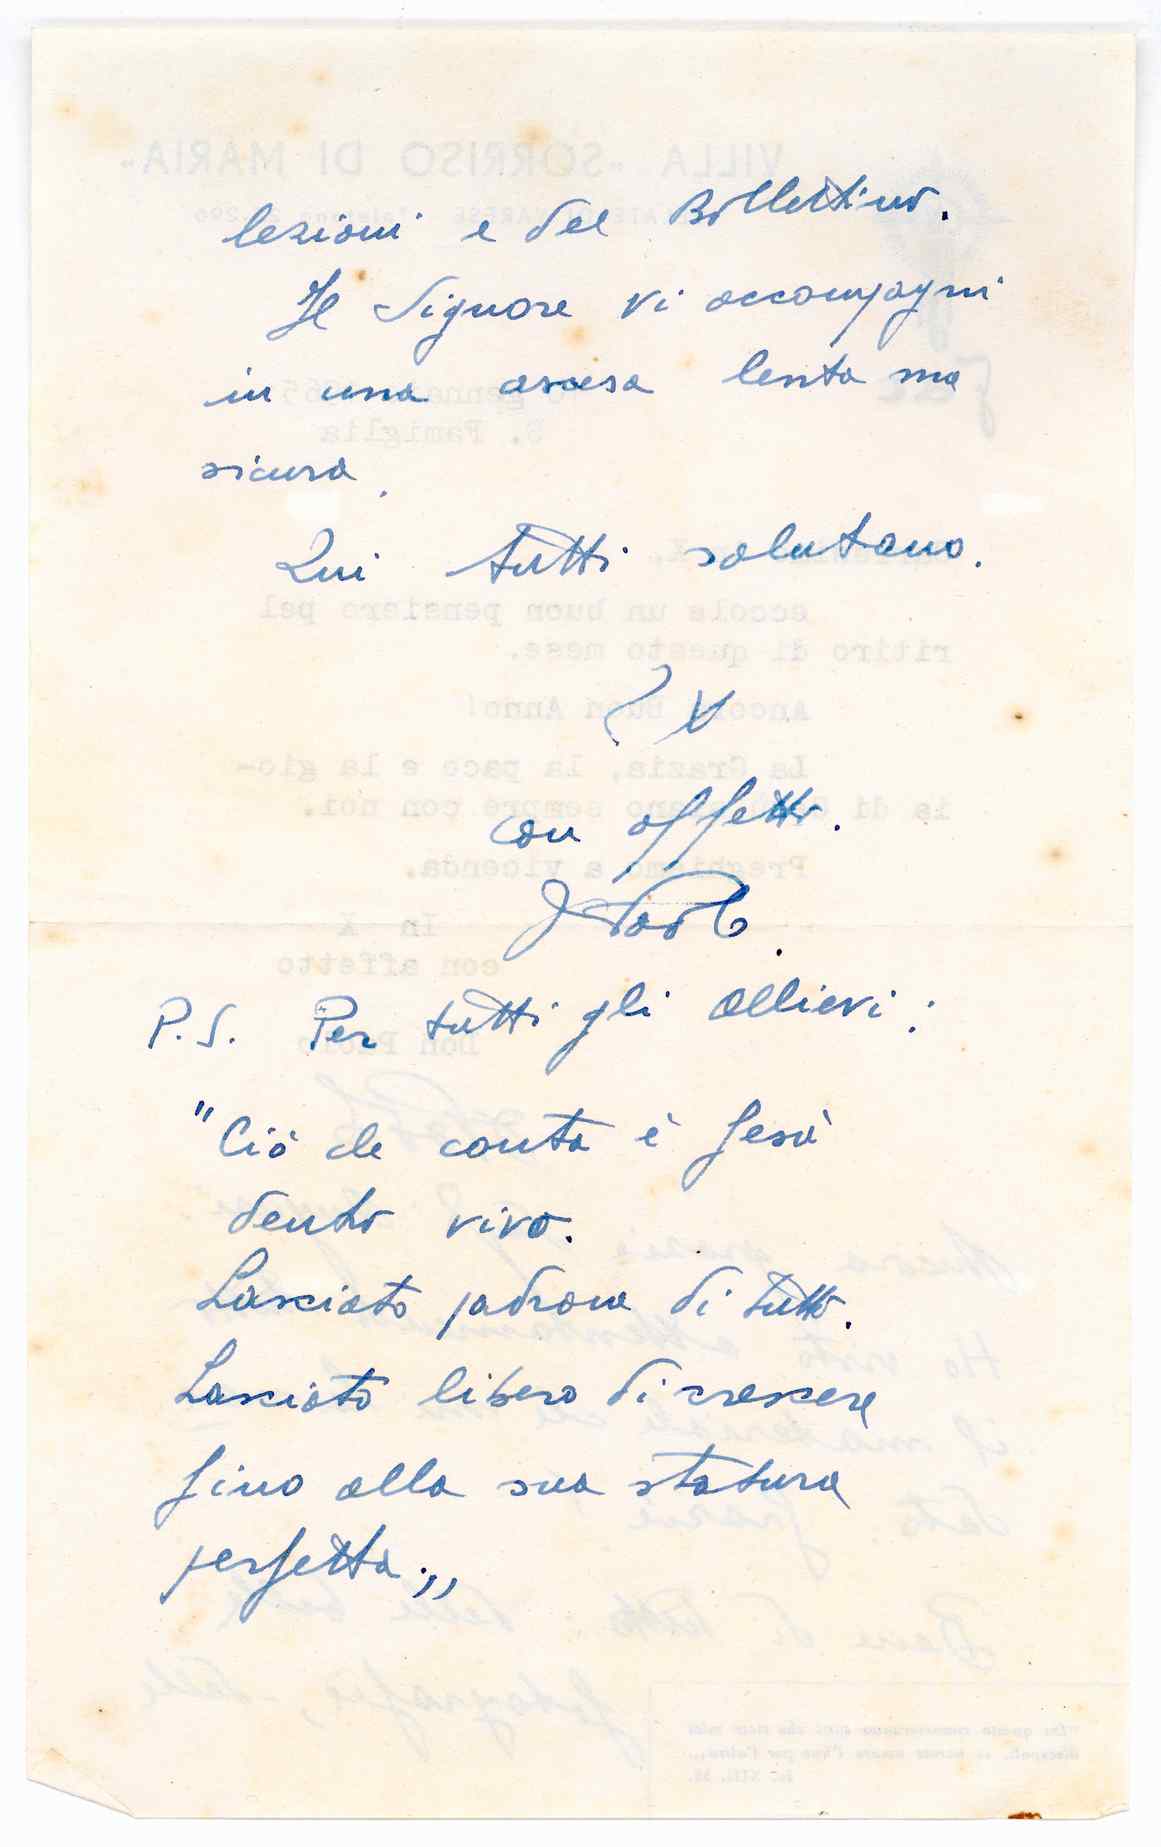 lezioni e del Bollettino.
Il Signore vi accompagni
in una ascesa lenta ma
sicura.
Qui tutti salutano.
con affetto.
P.S. Per tutti gli allievi:
"Ciò che conta è Gesù
dentro vivo.
Lasciato padrone di tutto.
Lasciato libero di crescere
fino alla sua statura
perfetta.„